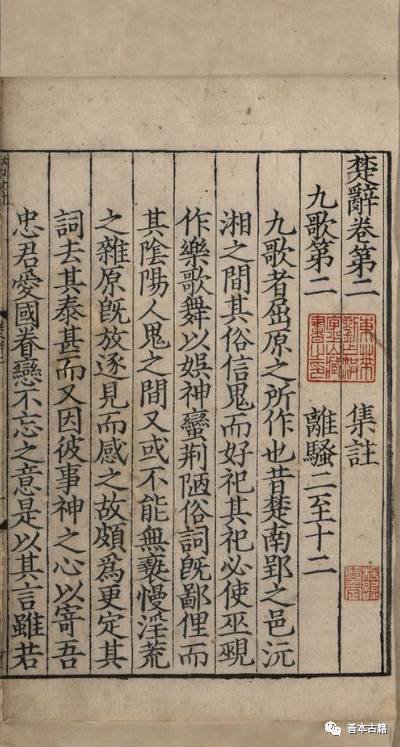 楚辭卷第二　集註
九歌第二　離騷二至十二
九歌者屈原之所作也昔楚南郢之邑沅
湘之間其俗信鬼而好祀其祀必使巫覡
作樂歌舞以娛神蠻荊陋俗詞旣鄙俚而
其陰陽人鬼之間又或不能無褻慢淫荒
之雜原旣放逐見而感之故頗為更定其
詞去其泰甚而又因彼事神之心以寄吾
忠君愛國眷戀不忘之意是以其言雖若
善本古籍